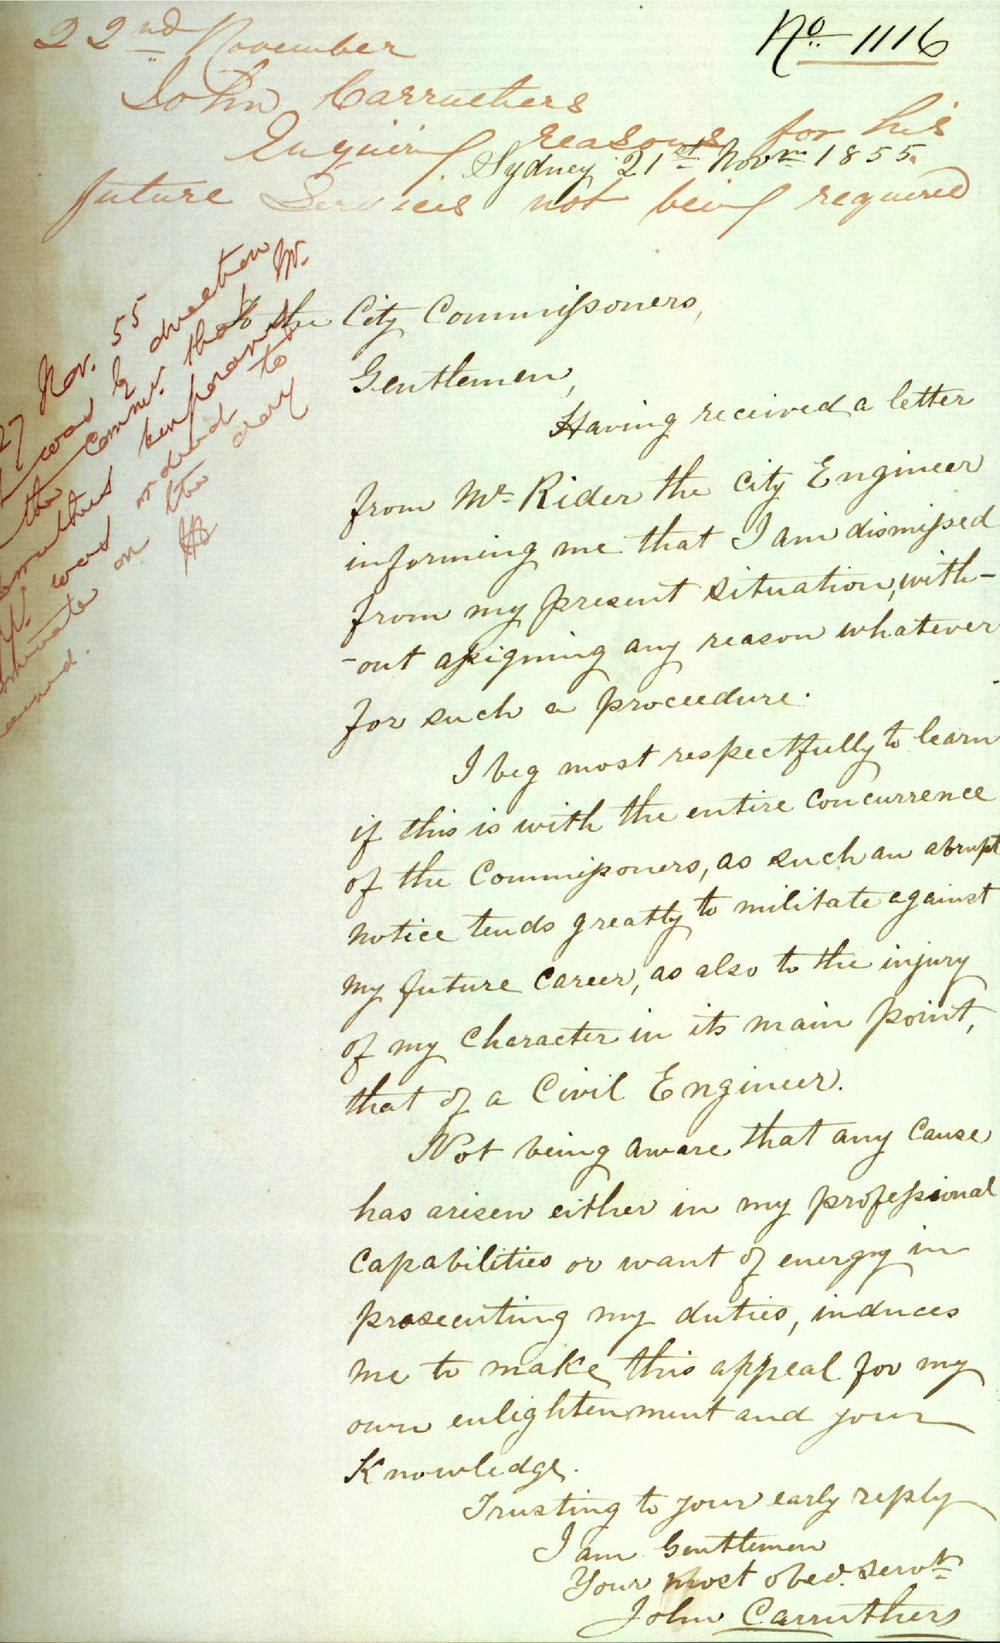 22nd November
No. 1116
John Carruthers
Enquiring reasons for his
Sydney 21st Novr 1855.
future Services not being required
27 Nov. 55
was by direction
the Commr. that Mr.
temporary
was ordered to
on the day
To the City Commissoners,
Gentlemen,
Having received a letter
from Mr Rider the City Engineer
informing me that I am dismissed
from my present situation, with-
-out assigning any reason whatever
for such a proceedure.
I beg most respectfully to learn
if this is with the entire concurrence
of the Commissoners, as such an abrupt
notice tends greatly to militate against
my future career, as also to the injury
of my Character in its main point,
that of a Civil Engineer.
Not being aware that any cause
has arisen either in my professional
Capabilities or want of energy in
prosecuting my duties, induces
me to make this appeal for my
own enlightenment and your
Knowledge.
Trusting to your early reply
I am Gentlemen
Your most obed. servt
John Carruthers